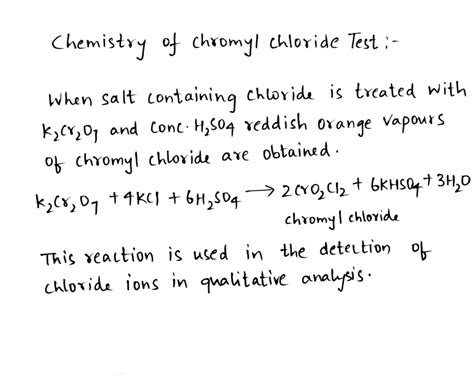 Chemistry of chromyl chloride Test :-
When salt containing Chloride is treated with
K₂Cr₂O₇ and Conc. H₂SO₄ reddish orange vapours
of chromyl chloride are obtained.
K₂Cr₂O₇ + 4KCl + 6H₂SO₄ → 2CrO₂Cl₂ + 6KHSO₄ + 3H₂O
chromyl chloride
This reaction is used in the detection of
chloride ions in qualitative analysis.